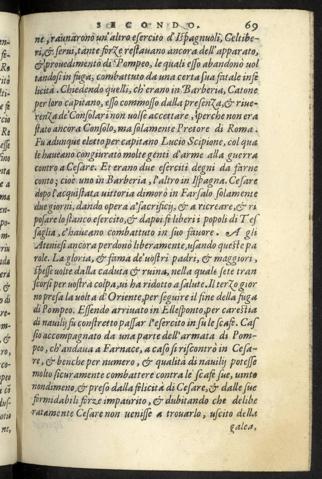 SECONDO. 69
ne, raunarono un'altro esercito d'Ispagnuoli, Celtibe-
ri, & serui, tante forze restauano ancora dell'apparato,
& prouedimento di Pompeo, le quali esso abandonò uol
tandosi in fuga, combattuto da una certa sua fatale infe
licità. Chiedendo quelli, ch'erano in Barberia, Catone
per loro capitano, esso commosso dalla presenza, & riue-
renza de' Consolari non uolse accettare, perche non era
stato ancora Consolo, ma solamente Pretore di Roma.
Fu adunque eletto per capitano Lucio Scipione, col qua
le haueano congiurato molte genti d'arme alla guerra
contro a Cesare. Et erano due eserciti degni da farne
conto; cioè uno in Barberia, l'altro in Ispagna. Cesare
dopo l'acquistata uittoria dimorò in Farsalo solamente
due giorni, dando opera a' sacrificij, & a ricreare, & ri
posare lo stanco esercito, & dapoi fe liberi i popoli di Tes
saglia, c'haueano combattuto in suo fauore. A gli
Ateniesi ancora perdonò liberamente, usando queste pa
role. La gloria, & fama de' uostri padri, & maggiori,
spesse uolte dalla caduta & ruina, nella quale sete tran
scorsi per uostra colpa, ui ha ridotto a salute. Il terzo gior
no presa la uolta d'Oriente, per seguire il fine della fuga
di Pompeo. Essendo arriuato in Ellesponto, per carestia
di nauilij fu constretto passar l'esercito in su le scafe. Cas
sio accompagnato da una parte dell'armata di Pom-
peo, ch'andaua a Farnace, a caso si riscontrò in Cesa-
re, & benche per numero, & qualità di nauilij potesse
molto sicuramente combattere contra le scafe sue, uinto
nondimeno, & preso dalla felicità di Cesare, & dalle sue
formidabili forze impaurito, & dubitando che delibe
ratamente Cesare non uenisse a trouarlo, uscito della
galea,